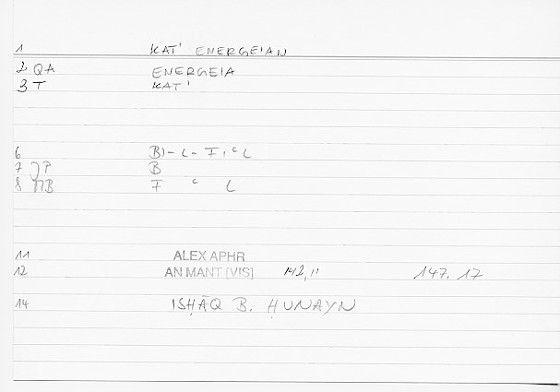 1 KAT' ENERGEIAN
2 QA ENERGEIA
3 T KAT'
6 BI-L-FIcL
7 JP B
8 B F c L
11 ALEX APHR
12 AN MANT [VIS] 142,11 147.17
14 ISḤĀQ B. ḤUNAYN